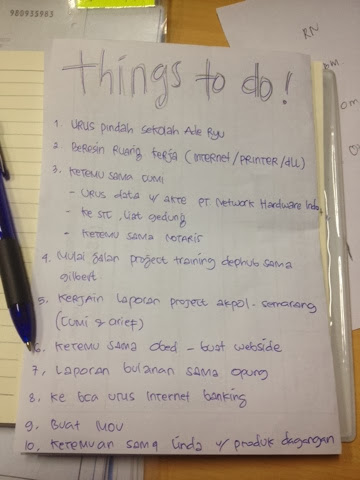 980935963
RN
Things to do!
1. URUS pindah sekolah Ade Ryu
2. Beresin Ruang Kerja (INTERNET/PRINTER/DLL)
3. KETEMU SAMA CUMI
- URUS data w/ AKTE PT Network Hardware Indo
- KE STC, liat gedung
- KETEMU SAMA NOTARIS
4. Mulai jalan project training dephub sama
gilbert
5. KERJAIN LAPORAN project akpol - semarang
(CUMI & arief)
6. KETEMU SAMA obed - buat webside
7. LAPORAN bulanan sama opung
8. KE bca urus internet banking
9. Buat MOU
10. KETEMUAN SAMA LINDA w/ produk dagangan